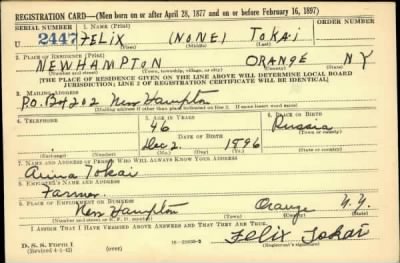 REGISTRATION CARD—(Men born on or after April 28, 1877 and on or before February 16, 1897)
SERIAL NUMBER 1. NAME (Print) ORDER NUMBER
U 2447 FELIX (NONE) TOKAI
(First) (Middle) (Last)
2. PLACE OF RESIDENCE (Print)
NEWHAMPTON ORANGE NY
(Number and street) (Town, township, village, or city) (County) (State)
[THE PLACE OF RESIDENCE GIVEN ON THE LINE ABOVE WILL DETERMINE LOCAL BOARD
JURISDICTION; LINE 2 OF REGISTRATION CERTIFICATE WILL BE IDENTICAL]
3. MAILING ADDRESS
P.O. Bx 202 New Hampton
[Mailing address if other than place indicated on line 2. If same insert word same]
4. TELEPHONE 5. AGE IN YEARS 6. PLACE OF BIRTH
46 Russia
DATE OF BIRTH (Town or county)
Dec 2. 1896
(Exchange) (Number) (Mo.) (Day) (Yr.) (State or country)
7. NAME AND ADDRESS OF PERSON WHO WILL ALWAYS KNOW YOUR ADDRESS
Anna Tokai
8. EMPLOYER'S NAME AND ADDRESS
Farmer
9. PLACE OF EMPLOYMENT OR BUSINESS
New Hampton Orange N.Y.
(Number and street or R. F. D. number) (Town) (County) (State)
I AFFIRM THAT I HAVE VERIFIED ABOVE ANSWERS AND THAT THEY ARE TRUE.
D. S. S. Form 1
(Revised 4-1-42) (over) 16-21630-2
Felix Tokai
(Registrant's signature)